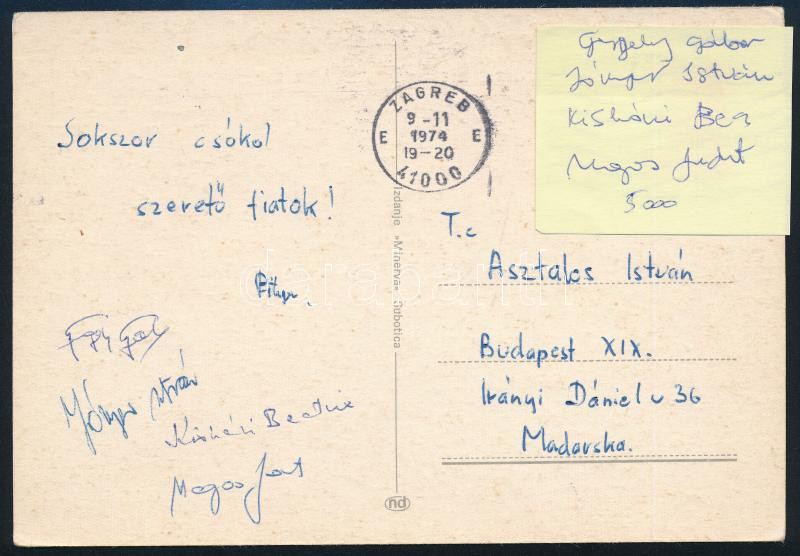 Sokszor csókol
szerető fiatok!
Jónyer István
Kishazi Beatrix
Magos
ZAGREB
9 -11
E 1974 E
19-20
41000
Izdanje »Minerva« Subotica
nd
T.c
Asztalos István
Budapest XIX.
Irányi Dániel u 36
Madarska.
Gergely Gábor
Jónyer István
Kisházi Bea
Magos Judit
5000
darabanth